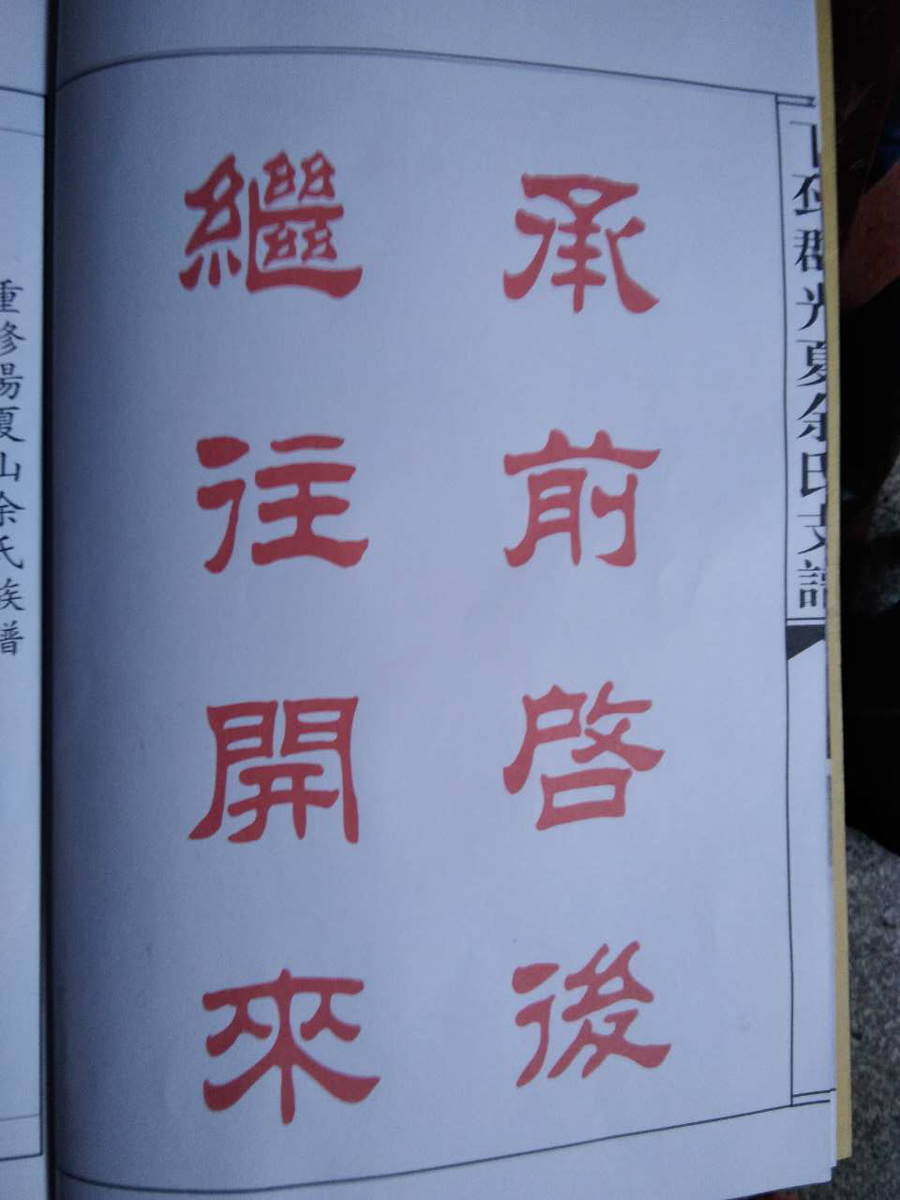 下邳群光夏余氏支譜
承前啓後
繼往開來
重修陽夏山余氏族譜